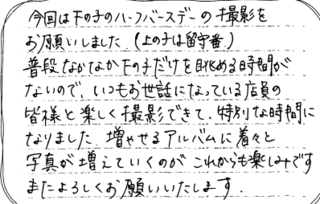 今回は下の子のハーフバースデーの撮影を
お願いしました(上の子は留守番)
普段なかなか下の子だけを眺める時間が
ないので、いつもお世話になっている店員の
皆様と楽しく撮影できて、特別な時間に
なりました。増やせるアルバムに着々と
写真が増えていくのがこれからも楽しみです
またよろしくお願いいたします.